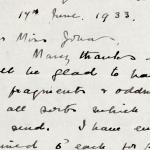 17th June. 1933.
Miss Jones
Many thanks -
be glad to ha
fragments & oddm
all sorts which
send. I have en
6 each for